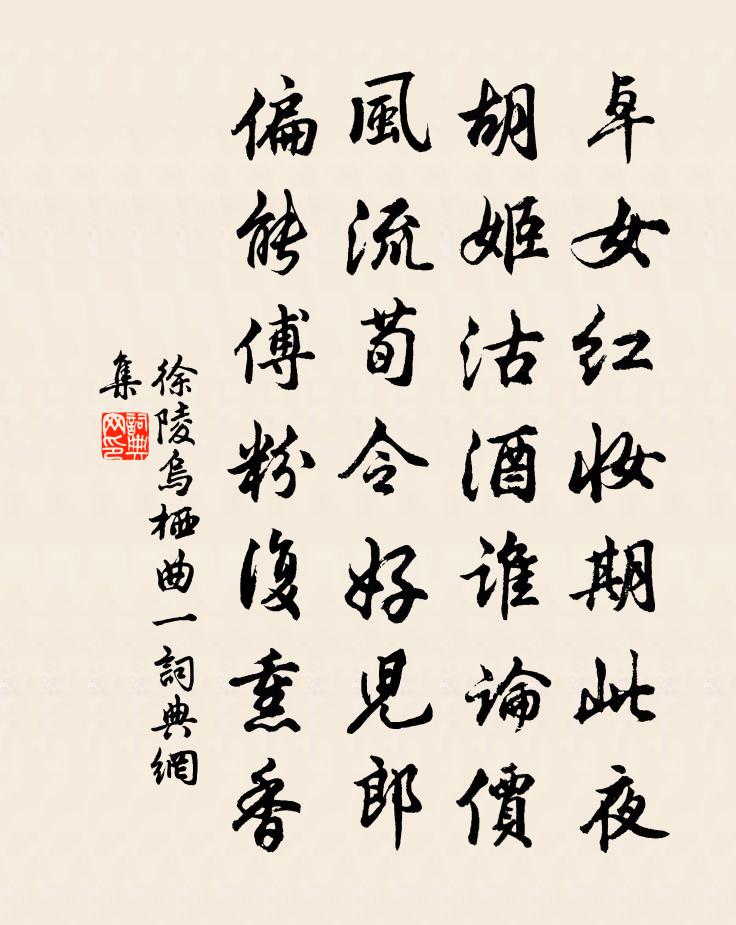 卓女紅妝期此夜
胡姬沽酒誰論價
風流荀令好兒郎
偏能傅粉復熏香
徐陵烏栖曲一詞典網
集
詞典
网印